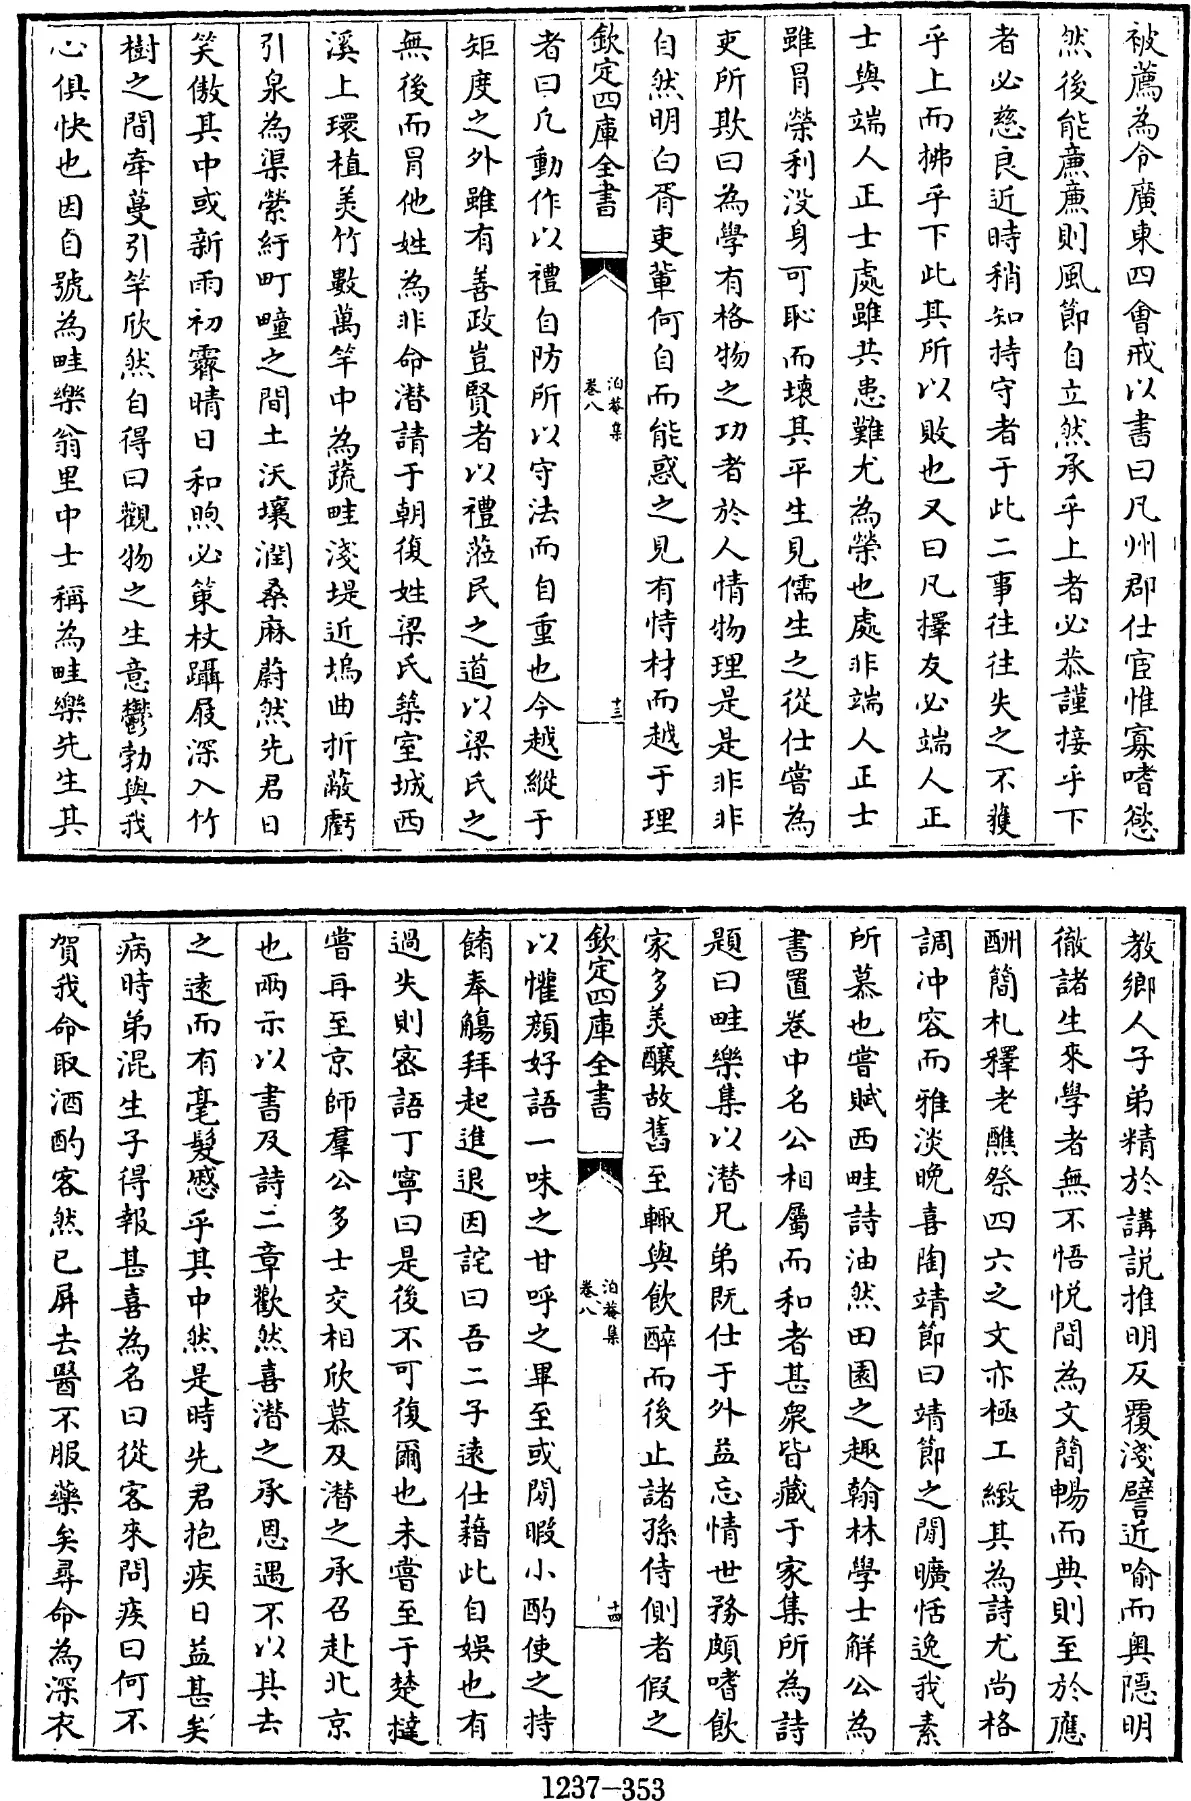 被薦為令廣東四會戒以書曰凡州郡仕宦惟寡嗜慾
然後能亷亷則風節自立然承乎上者必恭謹接乎下
者必慈良近時稍知持守者于此二事往往失之不獲
乎上而拂乎下此其所以敗也又曰凡擇友必端人正
士與端人正士處雖共患難尤為榮也處非端人正士
雖冐榮利没身可恥而壊其平生見儒生之從仕嘗為
吏所欺曰為學有格物之功者於人情物理是是非非
自然明白胥吏輩何自而能惑之見有恃材而越于理
欽定四庫全書
泊菴集
卷八
十三
者曰凡動作以禮自防所以守法而自重也今越縱于
矩度之外雖有善政豈賢者以禮蒞民之道以梁氏之
無後而冐他姓為非命潛請于朝復姓梁氏築室城西
溪上環植美竹數萬竿中為蔬畦淺堤近塢曲折蔽虧
引泉為渠縈紆町疃之間土沃壤潤桑麻蔚然先君日
笑傲其中或新雨初霽晴日和煦必策杖躡屐深入竹
樹之間牽蔓引竿欣然自得曰觀物之生意鬱勃與我
心俱快也因自號為畦樂翁里中士稱為畦樂先生其
教鄉人子弟精於講説推明反覆淺譬近喻而奥隠明
徹諸生來學者無不悟悦間為文簡暢而典則至於應
酬簡札釋老醮祭四六之文亦極工緻其為詩尤尚格
調冲容而雅淡晩喜陶靖節曰靖節之閒曠恬逸我素
所慕也嘗賦西畦詩油然田園之趣翰林學士解公為
書置卷中名公相屬而和者甚衆皆藏于家集所為詩
題曰畦樂集以潛兄弟既仕于外益忘情世務頗嗜飲
家多美醸故舊至輙與飲醉而後止諸孫侍側者假之
欽定四庫全書
泊菴集
卷八
十四
以懽顔好語一味之甘呼之畢至或閒暇小酌使之持
餚奉觴拜起進退因詫曰吾二子遠仕藉此自娛也有
過失則宻語丁寧曰是後不可復爾也未嘗至于楚撻
嘗再至京師羣公多士交相欣慕及潛之承召赴北京
也兩示以書及詩二章歡然喜潛之承恩遇不以其去
之遠而有毫髮慼乎其中然是時先君抱疾日益甚矣
病時弟混生子得報甚喜為名曰從客來問疾曰何不
賀我命取酒酌客然已屏去醫不服藥矣尋命為深衣
1237-353